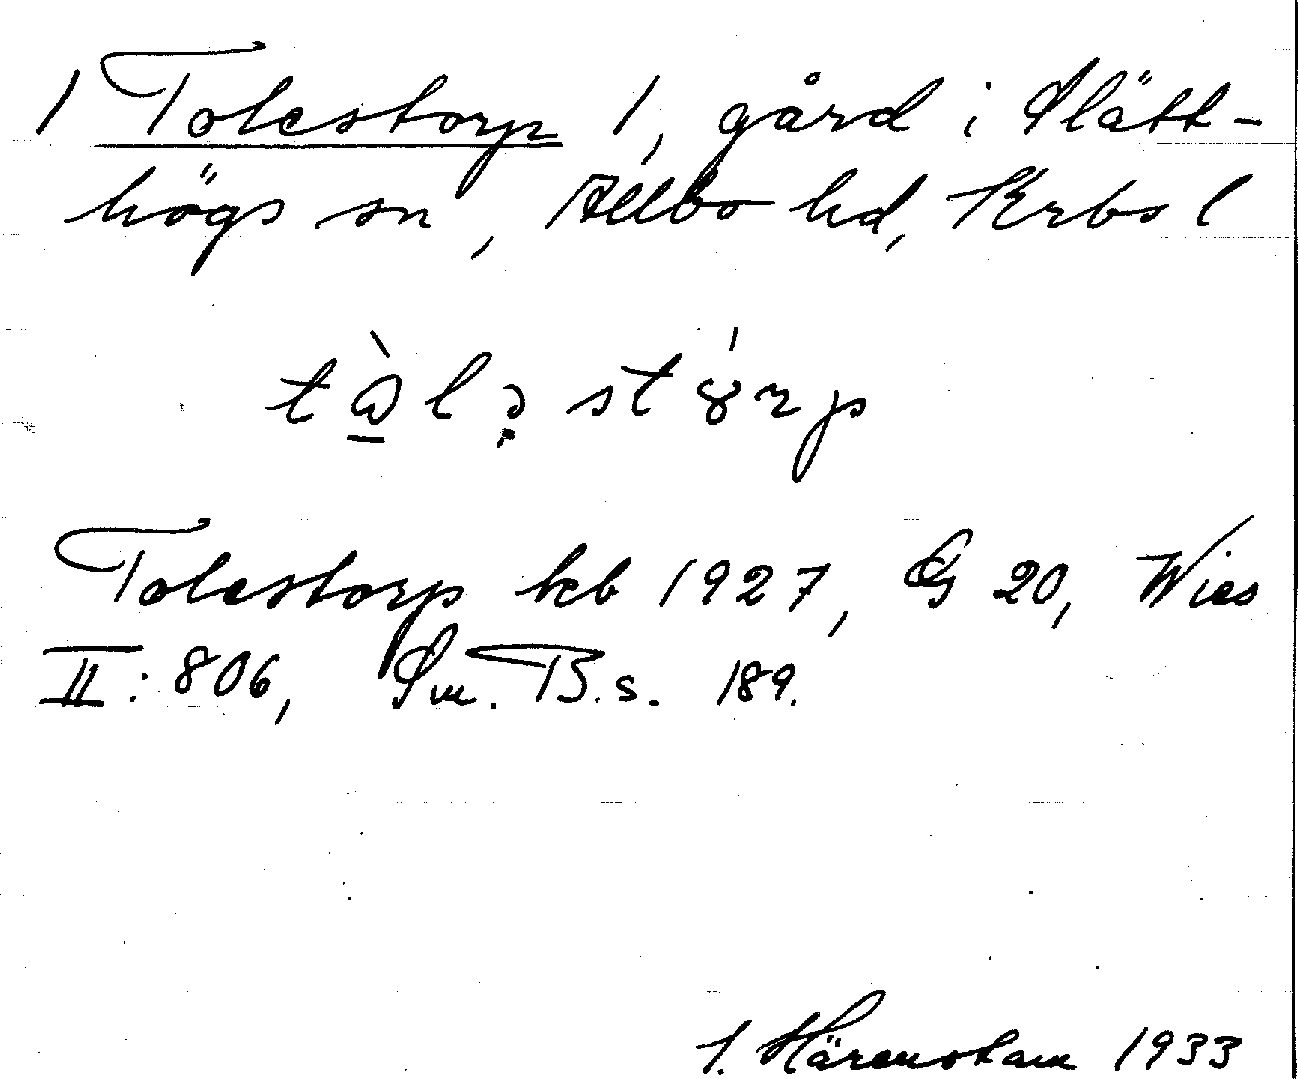 1 Tolestorp 1, gård i Slätt-
högs sn, Allbo hd, Krbs l
tàləstórp
Tolestorp kb 1927, G 20, Wies
II: 806, Sm. B.s. 189.
I. Härenstam 1933